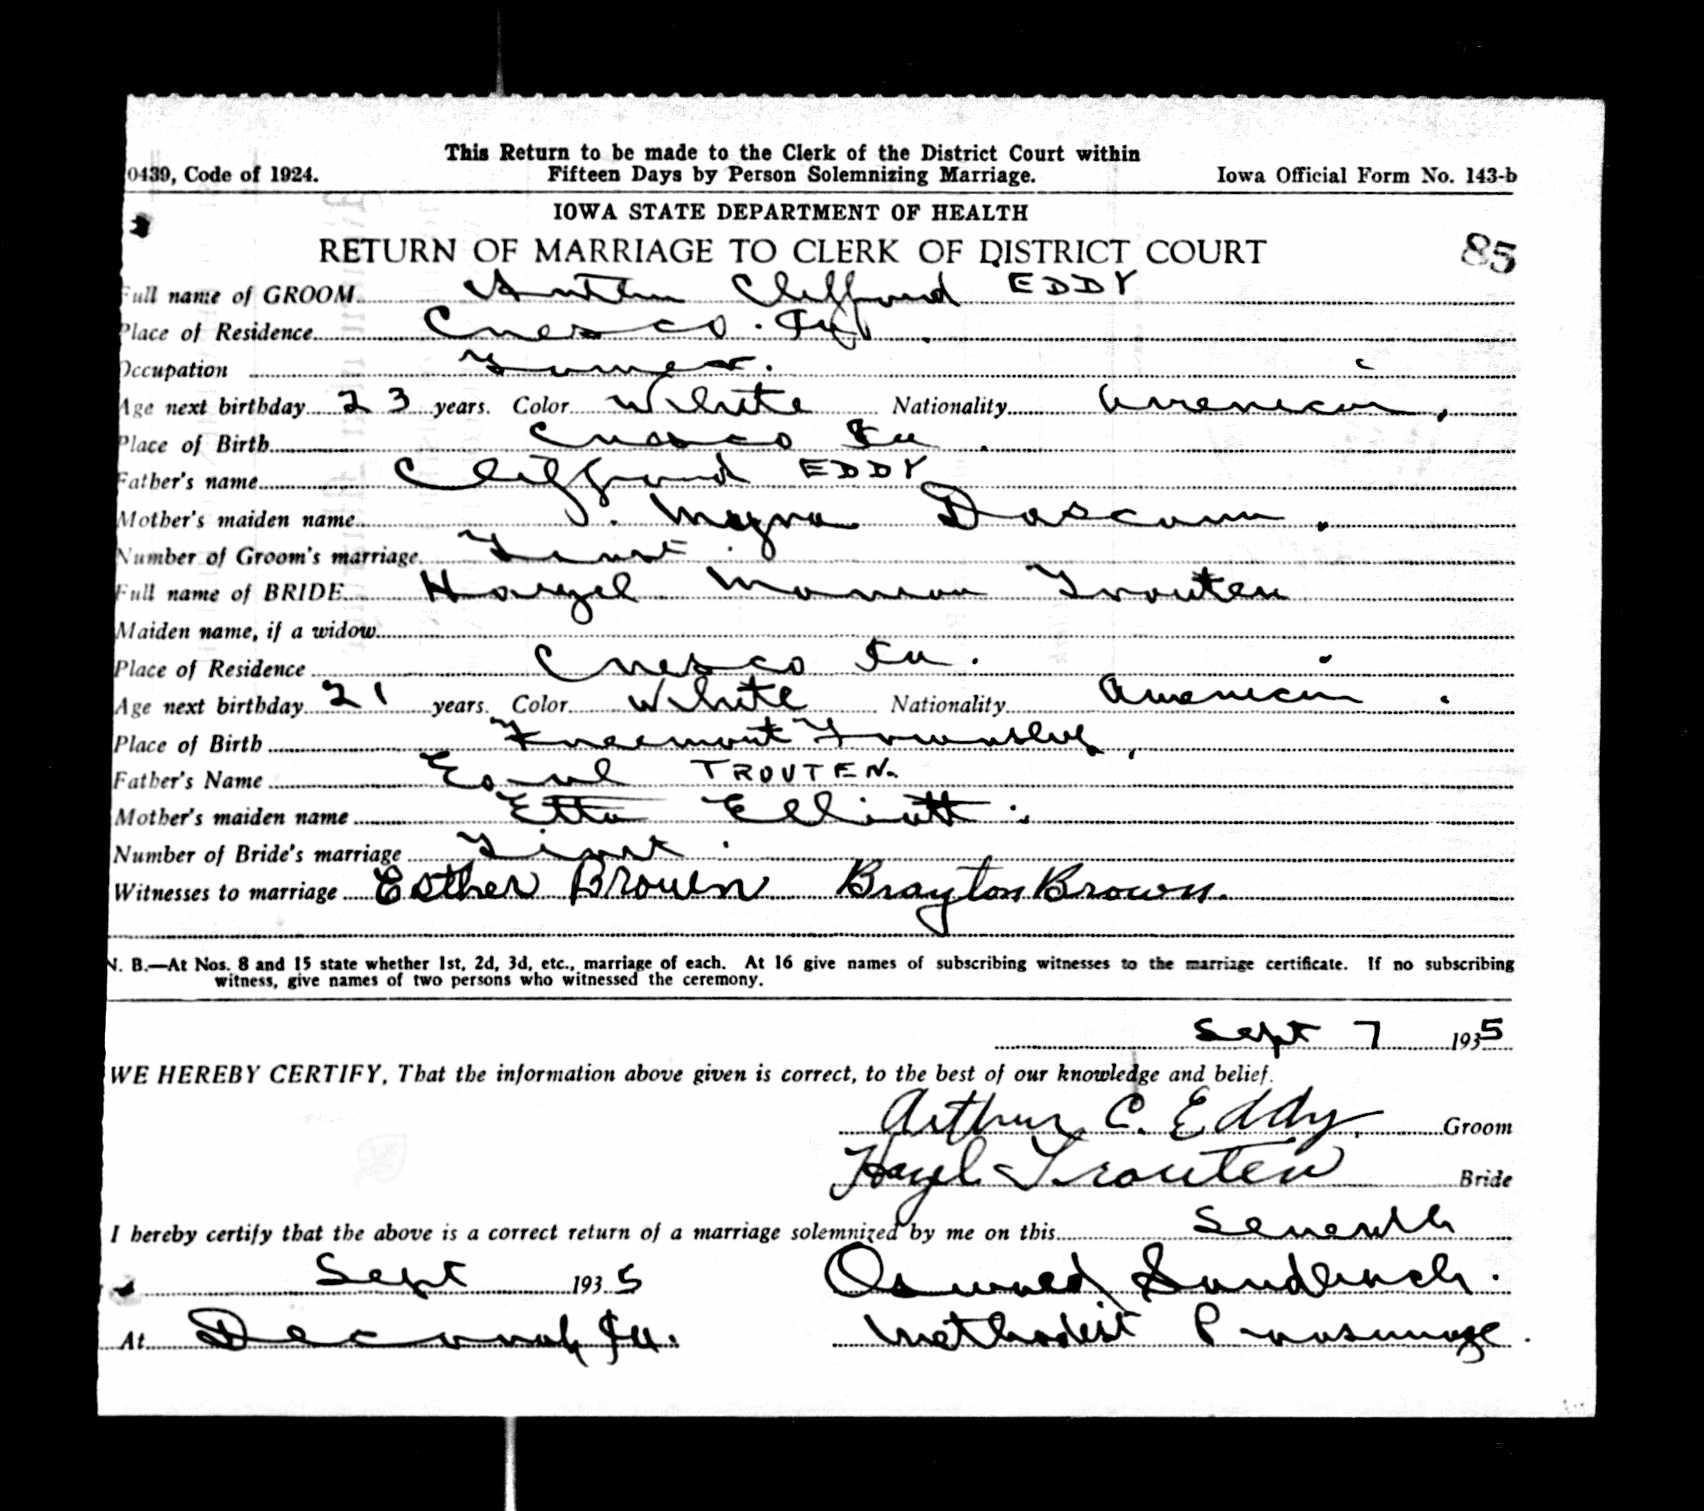 This Return to be made to the Clerk of the District Court within
0439, Code of 1924. Fifteen Days by Person Solemnizing Marriage. Iowa Official Form No. 143-b
IOWA STATE DEPARTMENT OF HEALTH
RETURN OF MARRIAGE TO CLERK OF DISTRICT COURT 85
Full name of GROOM Arthur Clifford EDDY
Place of Residence Cresco. Ia
Occupation Farmer.
Age next birthday 23 years. Color White Nationality American
Place of Birth Cresco Ia.
Father's name Clifford EDDY
Mother's maiden name Myra
Number of Groom's marriage First.
Full name of BRIDE Hazel Marion Trouten
Maiden name, if a widow
Place of Residence Cresco Ia.
Age next birthday 21 years. Color White Nationality American.
Place of Birth Freemont Township,
Father's Name Earl TROUTEN.
Mother's maiden name Etta Elliott.
Number of Bride's marriage First.
Witnesses to marriage Esther Brown Brayton Brown.
N. B.—At Nos. 8 and 15 state whether 1st, 2d, 3d, etc., marriage of each. At 16 give names of subscribing witnesses to the marriage certificate. If no subscribing
witness, give names of two persons who witnessed the ceremony.
Sept 7 1935
WE HEREBY CERTIFY, That the information above given is correct, to the best of our knowledge and belief.
Arthur C. Eddy, Groom
Hazel Trouten Bride
I hereby certify that the above is a correct return of a marriage solemnized by me on this Seventh
Sept 1935
At Decorah, Ia. Methodist Parsonage.